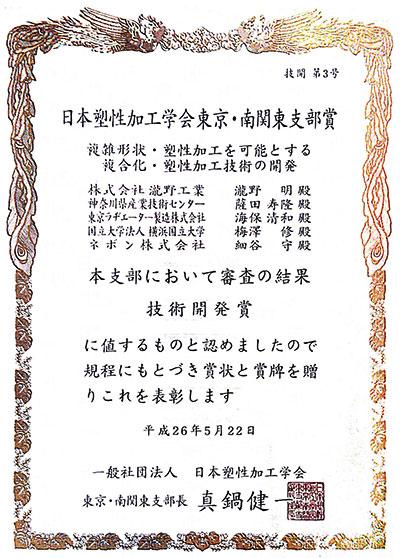 技開 第3号
日本塑性加工学会東京・南関東支部賞
複雑形状・塑性加工を可能とする
複合化・塑性加工技術の開発
株式会社瀧野工業 瀧野 明殿
神奈川県産業技術センター 薩田寿隆殿
東京ラヂエーター製造株式会社 海保清和殿
国立大学法人 横浜国立大学 梅澤 修殿
ネポン株式会社 細谷 守殿
本支部において審査の結果
技術開発賞
に値するものと認めましたので
規程にもとづき賞状と賞牌を贈
りこれを表彰します
平成26年5月22日
一般社団法人 日本塑性加工学会
東京・南関東支部長 真鍋健一